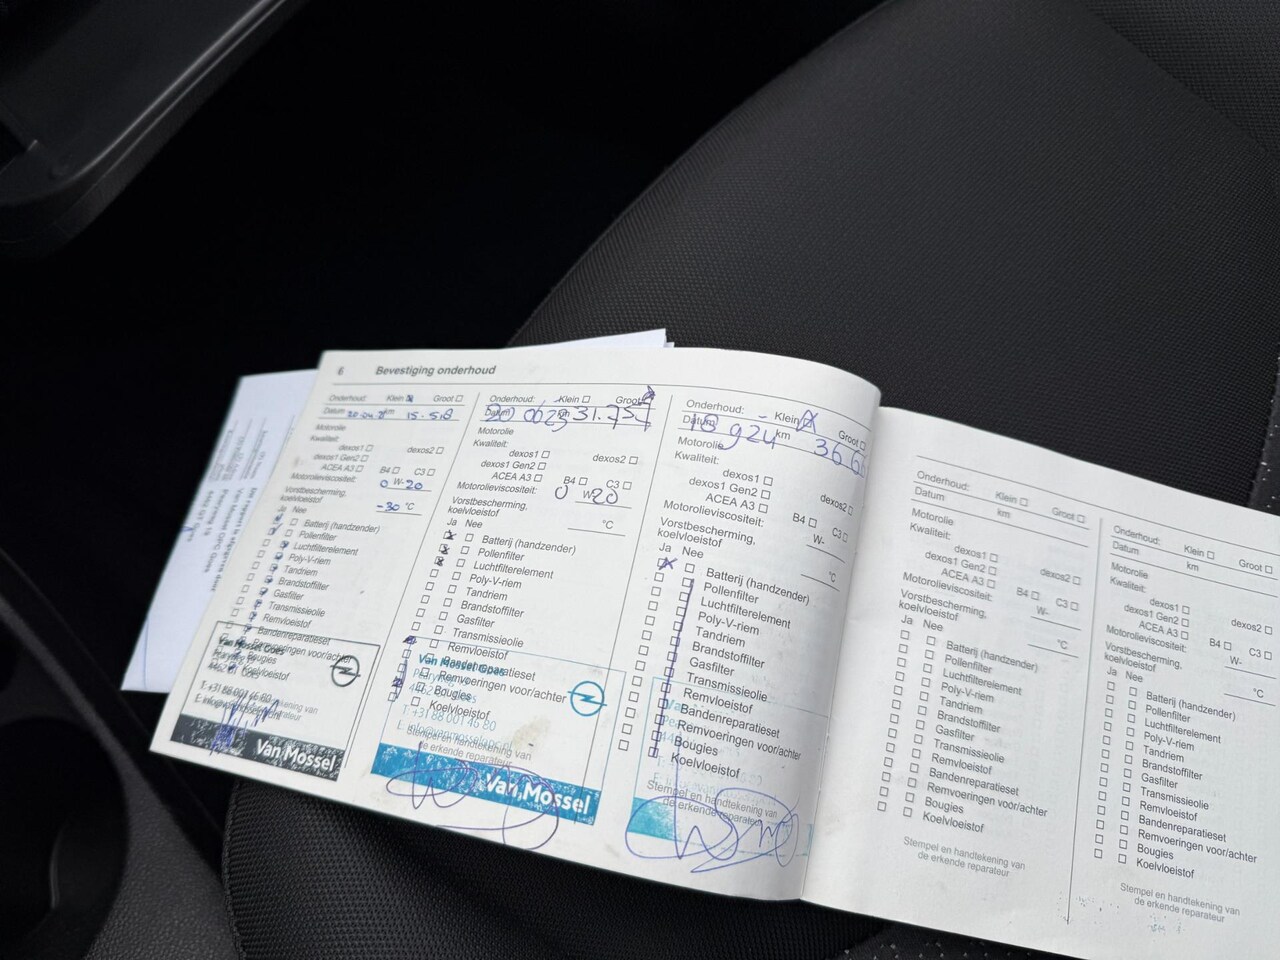 6 Bevestiging onderhoud
Onderhoud: Klein Groot
Datum km 15.518
Motorolie
Kwaliteit:
dexos1
dexos2
dexos1 Gen2
ACEA A3 B4 C3
Motorolieviscositeit: 0 W-20
Vorstbescherming,
koelvloeistof -30 °C
Ja Nee
Batterij (handzender)
Pollenfilter
Luchtfilterelement
Poly-V-riem
Tandriem
Brandstoffilter
Gasfilter
Transmissieolie
Remvloeistof
Bandenreparatieset
Remvoeringen voor/achter
Bougies
Koelvloeistof
Van Mossel Goes
Van Mossel
Onderhoud: Klein Groot
Datum 20 06 23 km 31.75
Motorolie
Kwaliteit:
dexos1
dexos2
dexos1 Gen2
ACEA A3 B4 C3
Motorolieviscositeit: 0 W-20
Vorstbescherming,
koelvloeistof °C
Ja Nee
Batterij (handzender)
Pollenfilter
Luchtfilterelement
Poly-V-riem
Tandriem
Brandstoffilter
Gasfilter
Transmissieolie
Remvloeistof
Bandenreparatieset
Remvoeringen voor/achter
Bougies
Koelvloeistof
Van Mossel Goes
T: +31 88 001 46 80
Stempel en handtekening van
de erkende reparateur
Van Mossel
Onderhoud: Klein Groot
Datum 18 9 24 km 36 6
Motorolie
Kwaliteit:
dexos1
dexos2
dexos1 Gen2
ACEA A3 B4 C3
Motorolieviscositeit: W-
Vorstbescherming,
koelvloeistof °C
Ja Nee
Batterij (handzender)
Pollenfilter
Luchtfilterelement
Poly-V-riem
Tandriem
Brandstoffilter
Gasfilter
Transmissieolie
Remvloeistof
Bandenreparatieset
Remvoeringen voor/achter
Bougies
Koelvloeistof
Stempel en handtekening van
de erkende reparateur
Onderhoud: Klein Groot
Datum km
Motorolie
Kwaliteit:
dexos1
dexos2
dexos1 Gen2
ACEA A3 B4 C3
Motorolieviscositeit: W-
Vorstbescherming,
koelvloeistof °C
Ja Nee
Batterij (handzender)
Pollenfilter
Luchtfilterelement
Poly-V-riem
Tandriem
Brandstoffilter
Gasfilter
Transmissieolie
Remvloeistof
Bandenreparatieset
Remvoeringen voor/achter
Bougies
Koelvloeistof
Stempel en handtekening van
de erkende reparateur
Onderhoud: Klein Groot
Datum km
Motorolie
Kwaliteit:
dexos1
dexos2
dexos1 Gen2
ACEA A3 B4 C3
Motorolieviscositeit: W-
Vorstbescherming,
koelvloeistof °C
Ja Nee
Batterij (handzender)
Pollenfilter
Luchtfilterelement
Poly-V-riem
Tandriem
Brandstoffilter
Gasfilter
Transmissieolie
Remvloeistof
Bandenreparatieset
Remvoeringen voor/achter
Bougies
Koelvloeistof
Stempel en handtekening van
de erkende reparateur